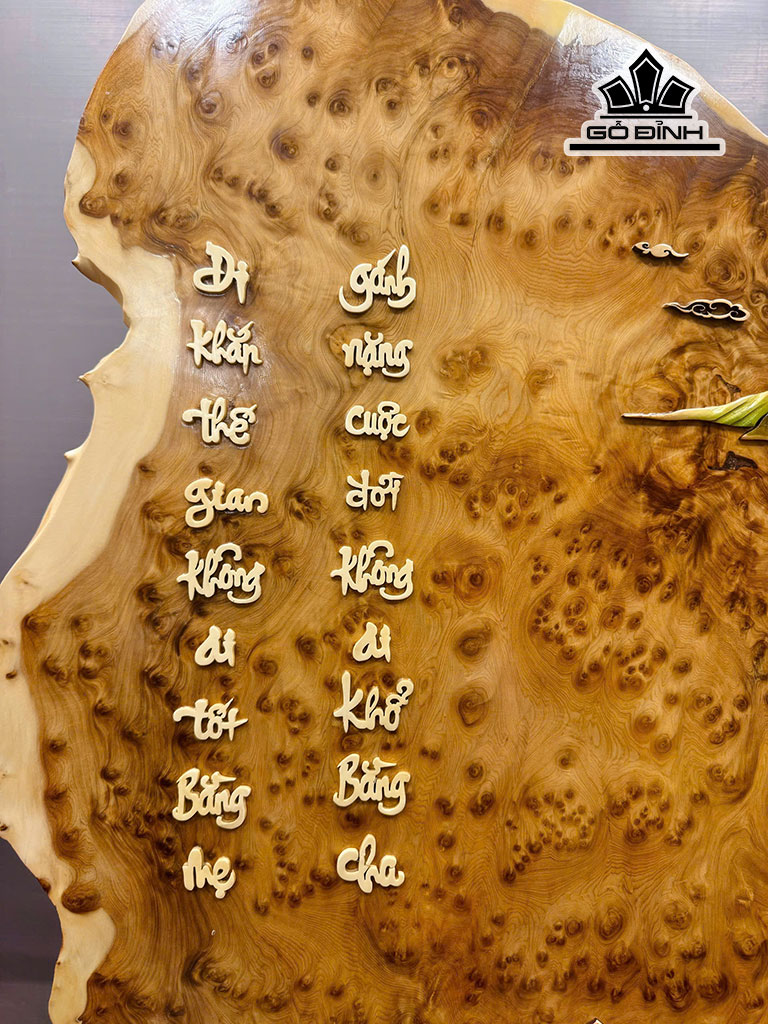 GỖ ĐỈNH
Đi khắp thế gian không ai tốt Bằng mẹ
gánh nặng cuộc đời không ai khổ Bằng cha